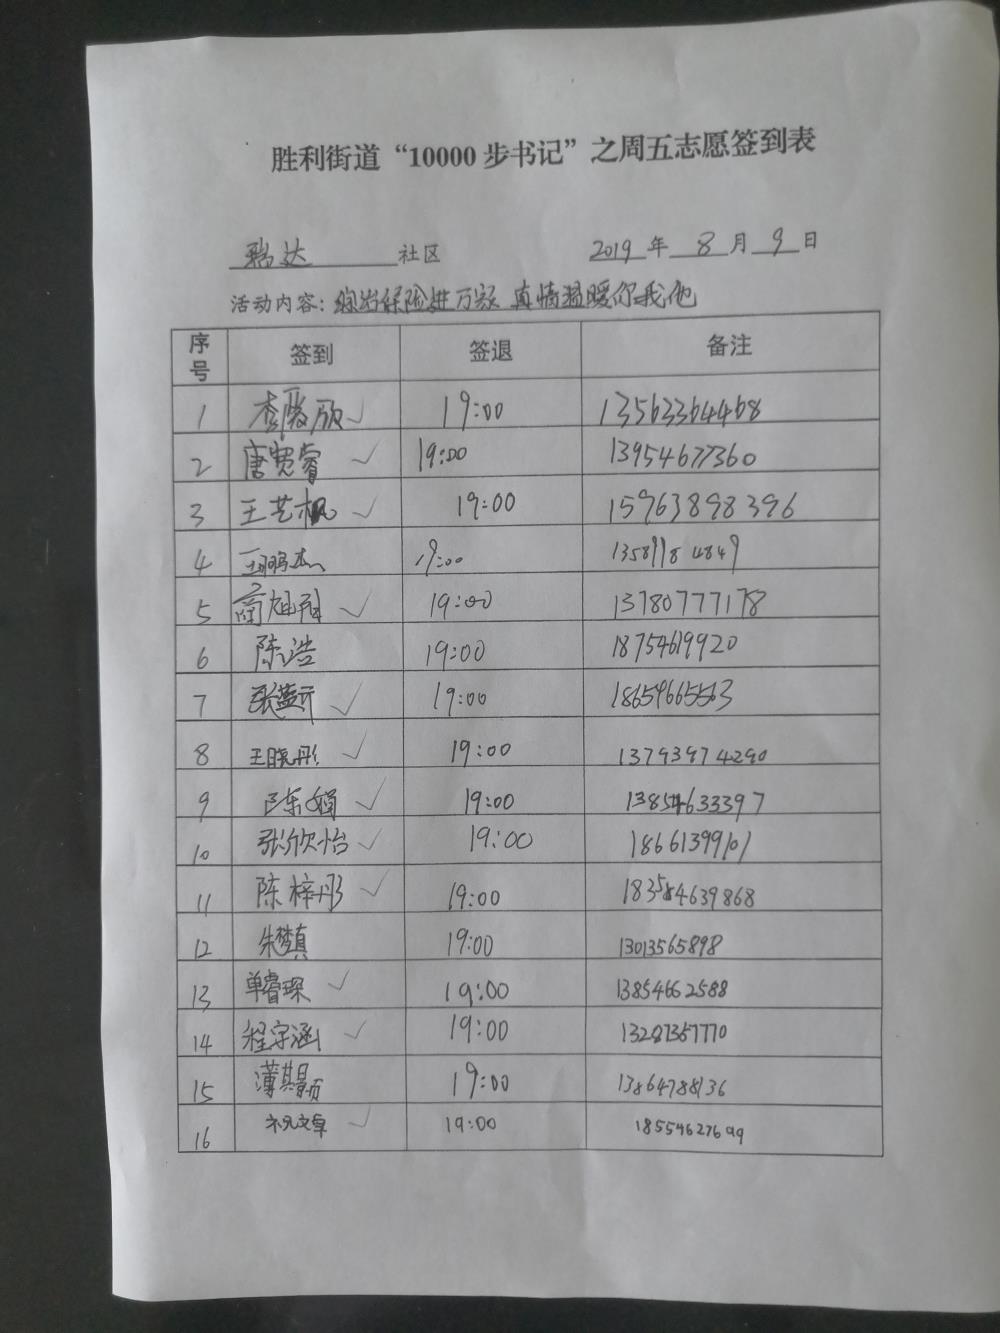 胜利街道“10000步书记”之周五志愿签到表
瑞达 社区 2019 年 8 月 9 日
活动内容：综治保险进万家 真情温暖你我他
序号 签到 签退 备注
1 李殿欣 ✓ 19:00 13563364468
2 唐宽睿 ✓ 19:00 13954677360
3 王艺枫 ✓ 19:00 15963898396
4 王鹏杰 19:00 13589184849
5 商旭翔 ✓ 19:00 13780777178
6 陈浩 19:00 18754619920
7 张益于 ✓ 19:00 18659665563
8 王晓彤 ✓ 19:00 13793974290
9 陈娟 ✓ 19:00 13854633397
10 张欣怡 ✓ 19:00 18661399101
11 陈梓彤 ✓ 19:00 18354639868
12 朱梦真 19:00 13013565898
13 单睿琛 ✓ 19:00 13854662588
14 程宇涵 ✓ 19:00 13287357770
15 薄其颢 19:00 13864788136
16 文卓 ✓ 19:00 18554627699